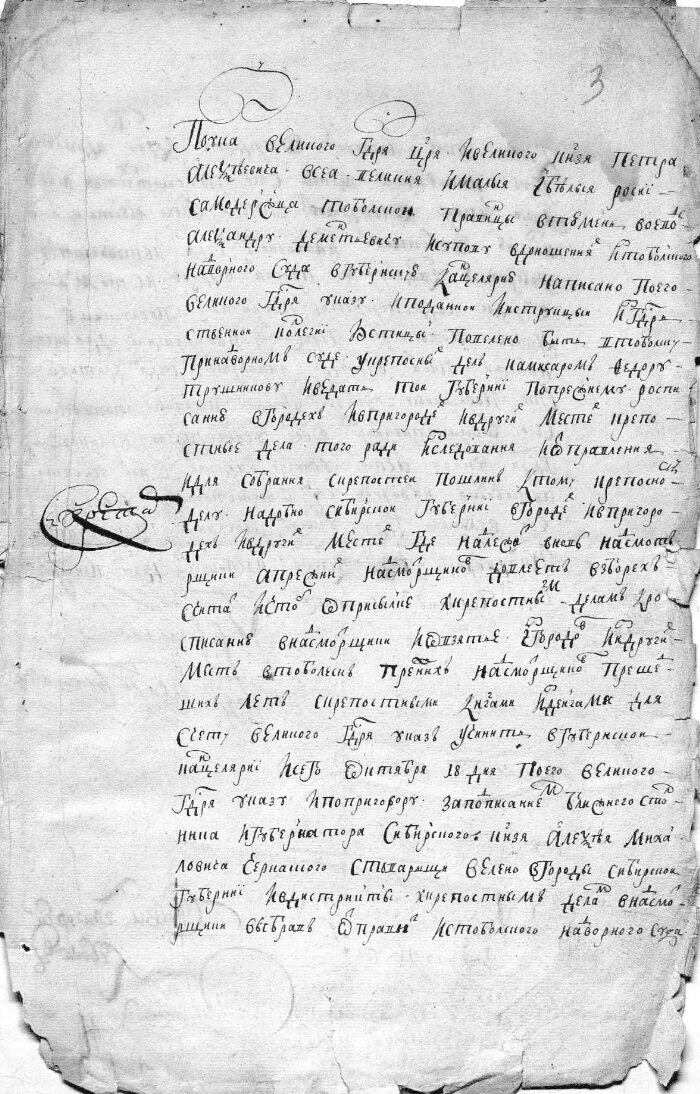 3
По указу великого гдря цря и великого князя Петра
Алеѯѣевича всеа великия и малыя и бѣлыя росиі
самодержца тоболской правинцы в Тюмень воеводе
Алеѯандру Дементьевичу в доношениі ис тоболского
надворного суда в губернскую канцелярию написано по его
великого гдря указу и по данной инструкцыи из гдря
ственной колегиі юстицыі повелено быть в тоболску
при надворном суде у крепосных дел камисаром Федору
и ведать той губерниі по прежнему роспи
санию в городех и в пригородех и в других местех крепо
стные дела того ради для иследования и отправления
и для собрания с крепостей пошлин к тому крепосному
делу надобно сибирской губерниі в городех и в пригоро
дех и в других местех где надлежит вновь надсмотр
щики а прежних надсмотрщиков для щету в зборех
к крепостным делам по ро
списанию в надсмотрщики и о взятье из городов и из других
мест в тоболеск прежних надсмотрщиков прешед
ших лет с крепостными книгами и з денгами для
счету великого гдря указ учинить в губернской
канцелярии и сего октября 18 дня по его великого
гдря указу и по приговору за подписанием ближнего стол
ника и губернатора сибирского князя Алеѯѣя Миха
ловича Черкаского с товарыщи велено в городы сибирской
губерниі и в дистрикты х крепостным делам в надсмотр
щики выбрав отправить ис тоболского надворного суда